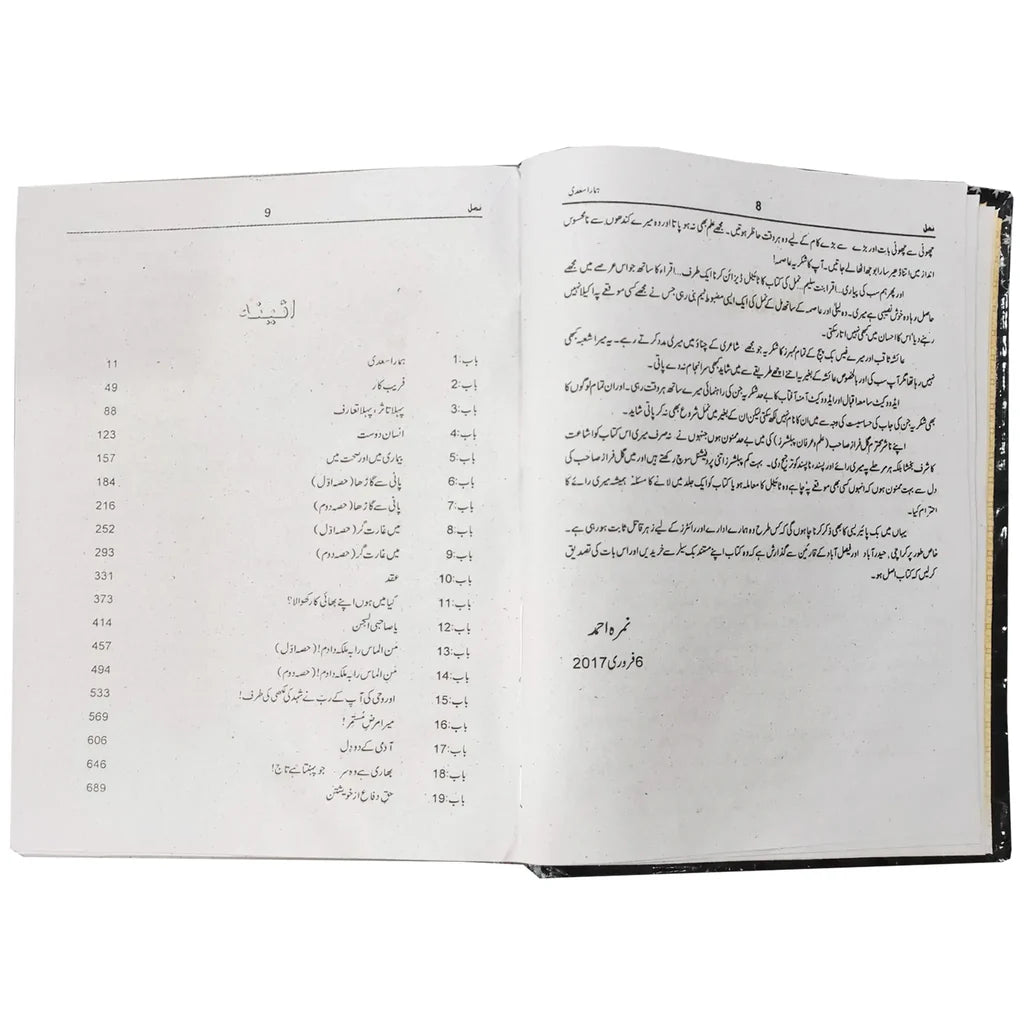 نمل
8
ہمارا سعدی
چھوٹی سے چھوٹی بات اور بڑے سے بڑے کام کے لیے وہ ہر وقت حاظر ہوتیں۔ مجھے علم بھی نہ ہو پاتا اور وہ میرے کندھوں سے نامحسوس
انداز میں اتنا ڈھیر سارا بوجھ اٹھا لے جاتیں۔ آپ کا شکریہ عاصمہ!
اور پھر ہم سب کی پیاری... اقرا بنت سلیم... نمل کی کتاب کا ٹائیٹل ڈیزائن کرنا ایک طرف... اقراء کا ساتھ جو اس عرصے میں مجھے
حاصل رہا وہ خوش نصیبی ہے میری۔ وہ لبنیٰ اور عاصمہ کے ساتھ مل کے نمل کی ایک ایسی مضبوط ٹیم بنی رہی جس نے مجھے کسی موقعے پہ اکیلا نہیں
رہنے دیا' اس کا احسان میں کبھی نہیں اتار سکتی۔
عائشہ ثاقب اور میرے فیس بک پیج کے تمام ممبرز کا شکریہ جو مجھے شاعری کے چناؤ میں میری مدد کرتے رہے۔ یہ میرا شعبہ کبھی
نہیں رہا تھا مگر آپ سب کی اور بالخصوص عائشہ کے بغیر یہ اتنے اچھے طریقے سے میں شاید کبھی سرانجام نہ دے پاتی۔
ایڈووکیٹ سامعہ اقبال اور ایڈووکیٹ آمنہ آفتاب کا بے حد شکریہ جن کی راہنمائی میرے ساتھ ہر وقت رہی۔ اور ان تمام لوگوں کا
بھی شکریہ جن کی جاب کی حساسیت کی وجہ سے میں ان کا نام نہیں لکھ سکتی لیکن ان کے بغیر میں نمل شروع بھی نہ کر پاتی شاید۔
اپنے ناشر محترم گل فراز صاحب (علم و عرفان پبلشرز) کی میں بے حد ممنون ہوں جنہوں نے نہ صرف میری اس کتاب کو اشاعت
کا شرف بخشا بلکہ ہر مرحلے پہ میری رائے اور پسند، ناپسند کو ترجیح دی۔ بہت کم پبلشرز اتنی پروفیشنل سوچ رکھتے ہیں اور میں گل فراز صاحب کی
دل سے بہت ممنون ہوں کہ انہوں کسی بھی موقعے پہ' چاہے وہ ٹائیٹل کا معاملہ ہو یا کتاب کو ایک جلد میں لانے کا مسئلہ' ہمیشہ میری رائے کا
احترام کیا۔
یہاں میں بک پائیریسی کا بھی ذکر کرنا چاہوں گی کہ کس طرح وہ ہمارے ادارے اور رائٹرز کے لیے زہر قاتل ثابت ہو رہی ہے۔
خاص طور پر کراچی، حیدر آباد اور فیصل آباد کے قارئین سے گذارش ہے کہ وہ کتاب اپنے مستند بک سیلر سے خریدیں اور اس بات کی تصدیق
کر لیں کہ کتاب اصل ہو۔
نمرہ احمد
6 فروری 2017
نمل
9
آئینہ
باب: 1 ہمارا سعدی 11
باب: 2 فریب کار 49
باب: 3 پہلا تاثر، پہلا تعارف 88
باب: 4 انسان دوست 123
باب: 5 بیماری میں اور صحت میں 157
باب: 6 پانی سے گاڑھا (حصہ اوّل) 184
باب: 7 پانی سے گاڑھا (حصہ دوم) 216
باب: 8 میں غارت گر (حصہ اوّل) 252
باب: 9 میں غارت گر (حصہ دوم) 293
باب: 10 عقد 331
باب: 11 کیا میں ہوں اپنے بھائی کا رکھوالا؟ 373
باب: 12 یا صاحبی السجن 414
باب: 13 مَن الماس را بہ ملکہ دادم! (حصہ اوّل) 457
باب: 14 مَن الماس را بہ ملکہ دادم! (حصہ دوم) 494
باب: 15 اور وحی کی آپ کے ربّ نے شہد کی مکھی کی طرف! 533
باب: 16 میرا مرضِ مُستمر! 569
باب: 17 آدمی کے دو دل 606
باب: 18 بھاری ہے وہ سر جو پہنتا ہے تاج! 646
باب: 19 حقِ دفاع از خویشتن 689